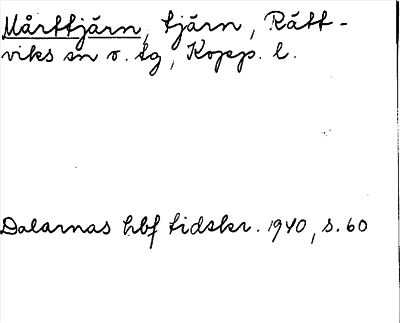 Mårttjärn, tjärn, Rätt-
viks sn o. tg, Kopp. l.
Dalarnas hbf tidskr. 1940, s. 60